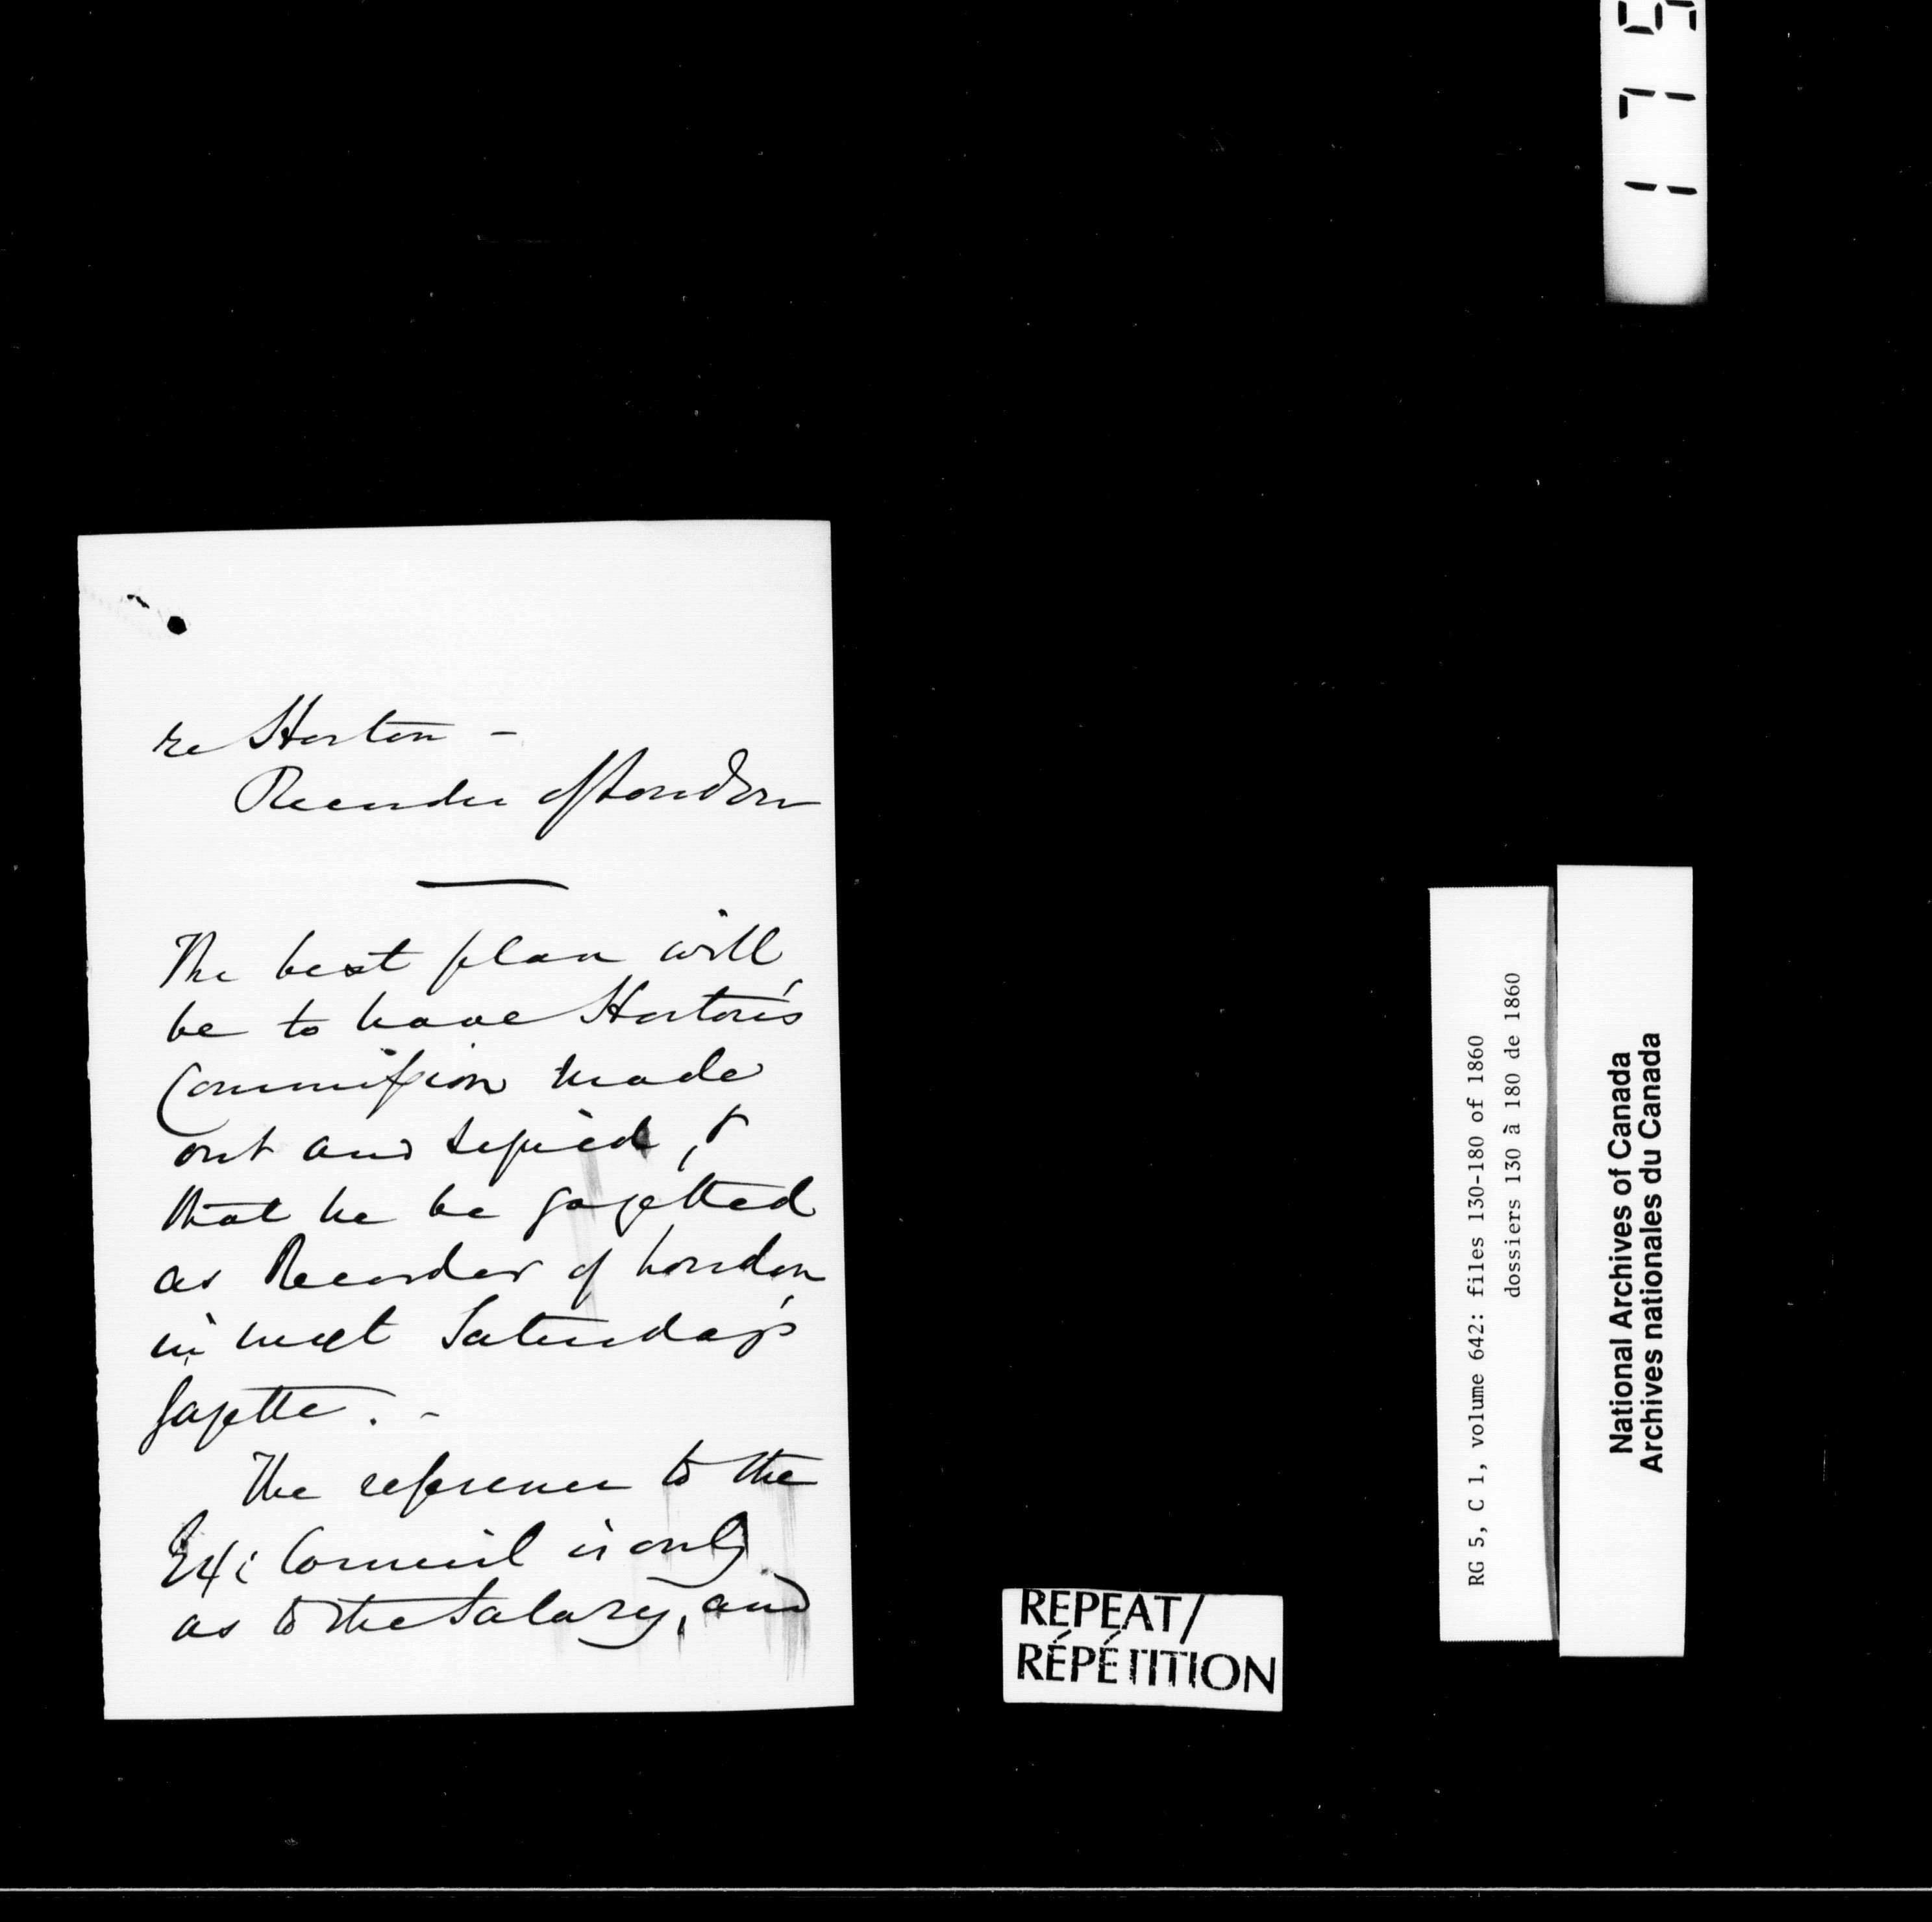 re Horton -
Recorder of London
The best plan will
be to have Horton's
Commission made
out and signed, &
that he be gazetted
as Recorder of London
in next Saturday's
Gazette. -
The reference to the
Exe Council is only
as to the Salary, and
REPEAT/
RÉPÉTITION
RG 5, C 1, volume 642: files 130-180 of 1860
dossiers 130 à 180 de 1860
National Archives of Canada
Archives nationales du Canada